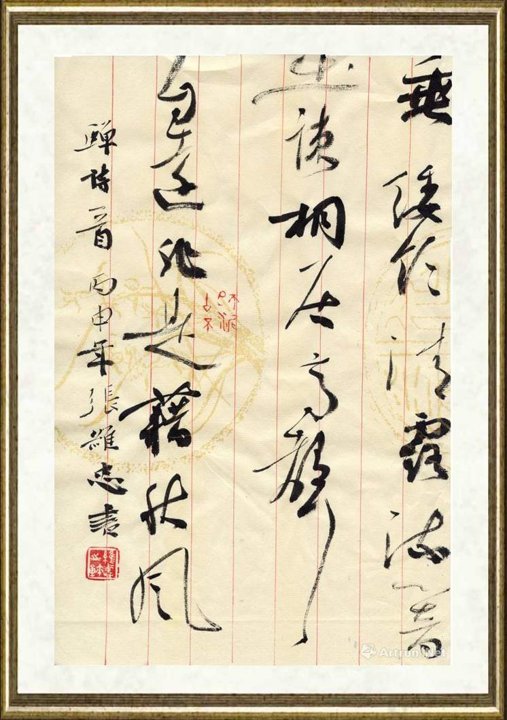 垂緌飲清露流響
出疎桐居高聲
自遠非是藉秋風
蟬詩一首 丙申年張忠書
Artron.Net